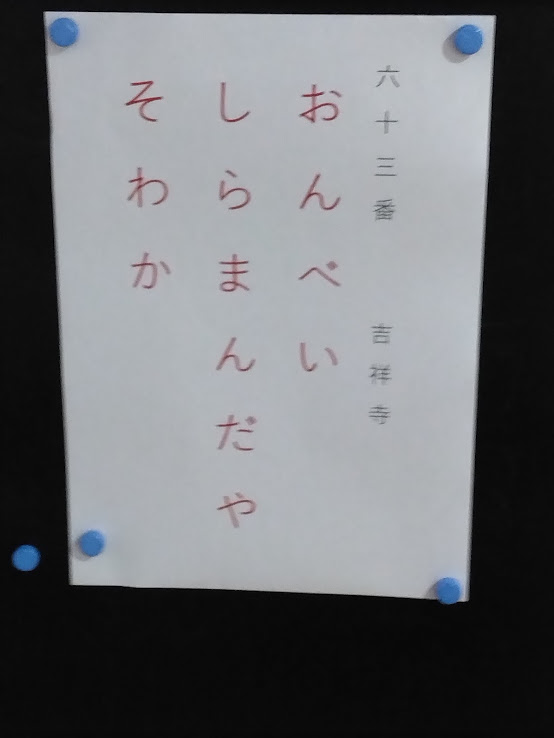 六十三番 吉祥寺
おんべい
しらまんだや
そわか